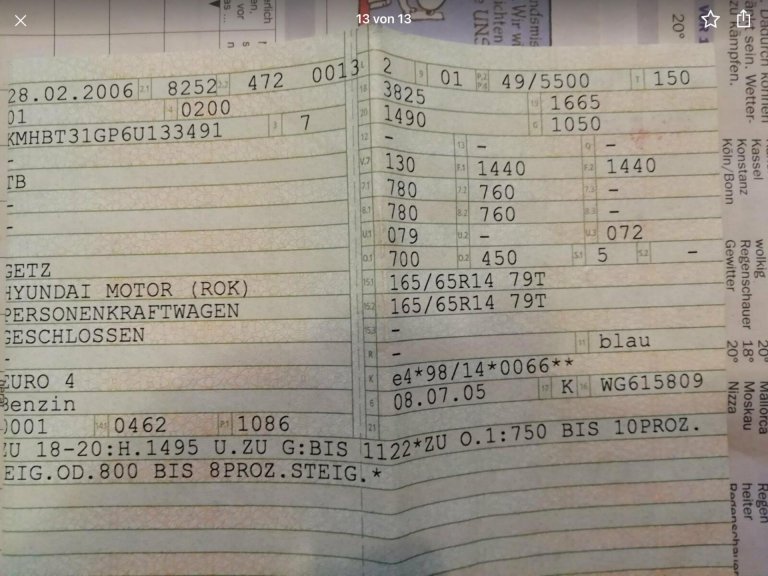 13 von 13
28.02.2006 2.1 8252 2.2 472 0013
01 4 0200
KMHBT31GP6U133491 3 7
-
TB
-
-
GETZ
HYUNDAI MOTOR (ROK)
PERSONENKRAFTWAGEN
GESCHLOSSEN
-
EURO 4
Benzin
0001 14.1 0462 P.1 1086
ZU 18-20:H.1495 U.ZU G:BIS 1122*ZU O.1:750 BIS 10PROZ.
STEIG.OD.800 BIS 8PROZ.STEIG.*
L 2 9 01 P.2 P.4 49/5500 T 150
18 3825 19 1665
20 1490 G 1050
12 - 13 - Q -
V.7 130 F.1 1440 F.2 1440
7.1 780 7.2 760 7.3 -
8.1 780 8.2 760 8.3 -
U.1 079 U.2 - U.3 072
O.1 700 O.2 450 S.1 5 S.2 -
15.1 165/65R14 79T
15.2 165/65R14 79T
15.3 -
R - 11 blau
K e4*98/14*0066**
6 08.07.05 17 K 16 WG615809
21
. Dadurch können
zu kämpfen.
20°
Kassel
Konstanz
Köln/Bonn
wolkig
Regenschauer
Gewitter
20°
18°
20°
Mallorca
Moskau
Nizza
Regen
heiter
Regenschauer